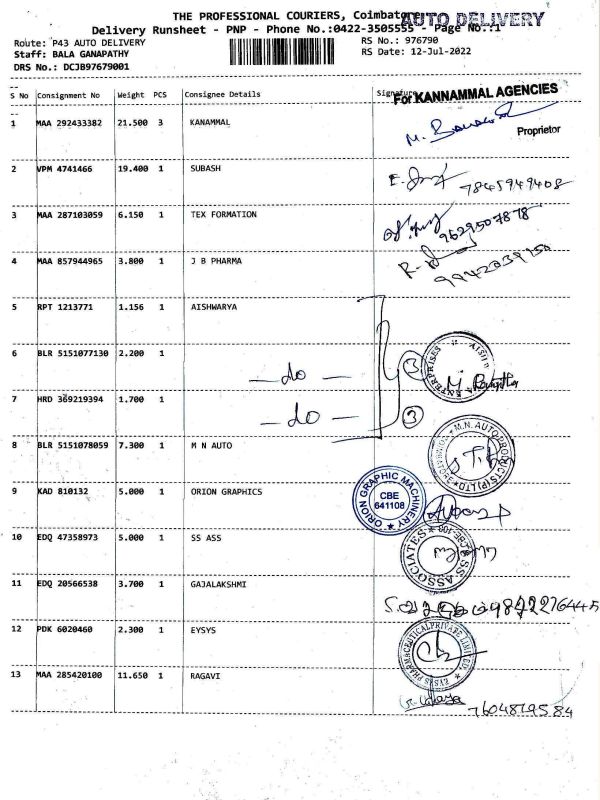 THE PROFESSIONAL COURIERS, Coimbatore
AUTO DELIVERY
Delivery Runsheet - PNP - Phone No.:0422-3505555 - Page No.:1
Route: P43 AUTO DELIVERY
RS No.: 976790
Staff: BALA GANAPATHY
RS Date: 12-Jul-2022
DRS No.: DCJB97679001
S No Consignment No Weight PCS Consignee Details Signature
For KANNAMMAL AGENCIES
1 MAA 292433382 21.500 3 KANAMMAL
Proprietor
2 VPM 4741466 19.400 1 SUBASH
7845949408
3 MAA 287103059 6.150 1 TEX FORMATION
9629507878
4 MAA 857944965 3.800 1 J B PHARMA
5 RPT 1213771 1.156 1 AISHWARYA
6 BLR 5151077130 2.200 1
— do — 3
ENTERPRISES
7 HRD 369219394 1.700 1
— do — 3
8 BLR 5151078059 7.300 1 M N AUTO
M.N. AUTO PRODUCTS (P) LTD
9 KAD 810132 5.000 1 ORION GRAPHICS
ORION GRAPHIC MACHINERY
CBE
641108
10 EDQ 47358973 5.000 1 SS ASS
SS ASSOCIATES
11 EDQ 20566538 3.700 1 GAJALAKSHMI
9842276445
12 PDK 6020460 2.300 1 EYSYS
EYSYS PHARMACEUTICAL PRIVATE LIMITED
13 MAA 285420100 11.650 1 RAGAVI
7604819584